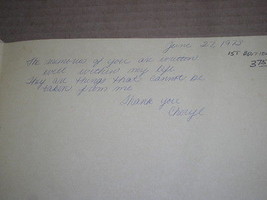 June 21, 1973
1ST EDITION
The memories of you are written
well within my life
They are things that cannot be
taken from me
Thank you
Cheryl